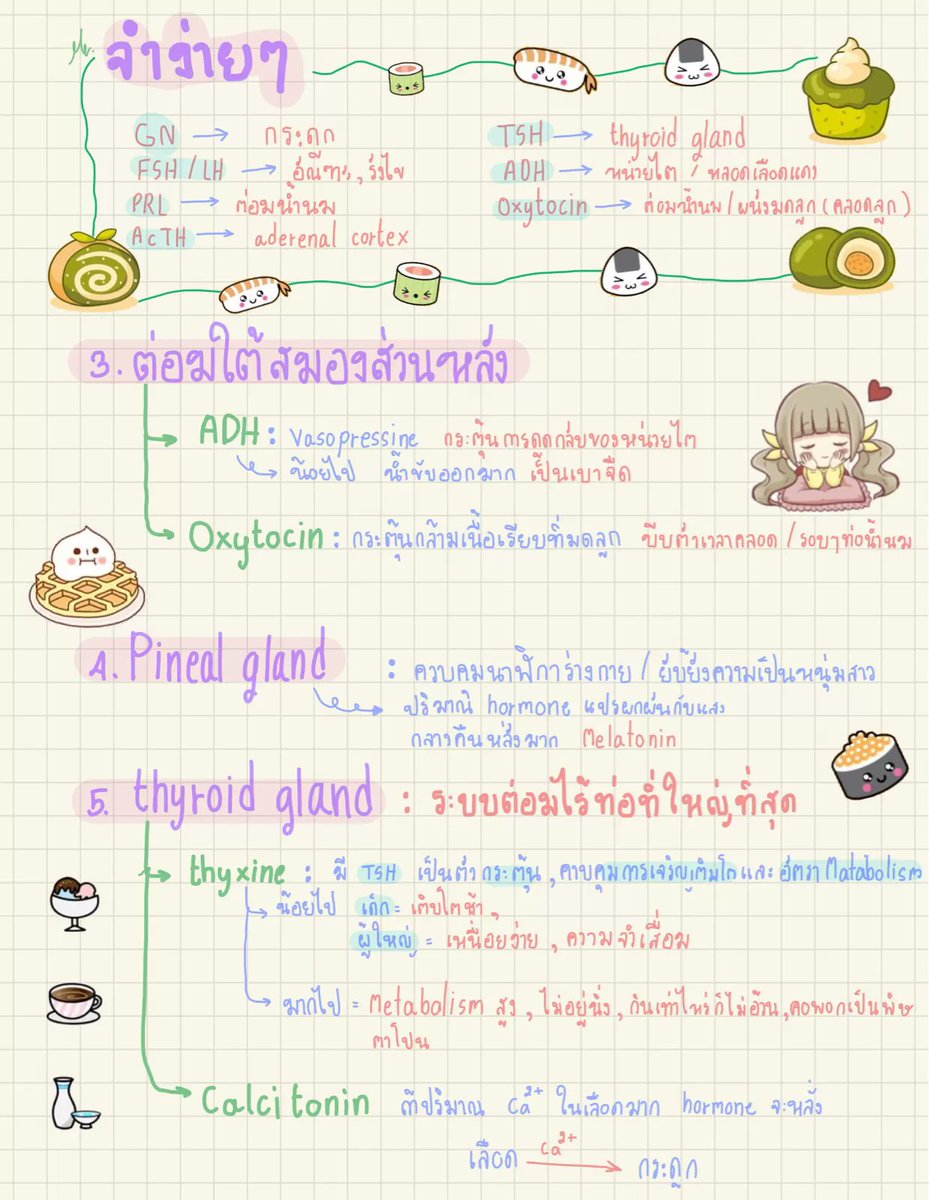 จำง่ายๆ
GN → กระดูก
FSH / LH → อัณฑะ, รังไข่
PRL → ต่อมน้ำนม
AcTH → aderenal cortex
TSH → thyroid gland
ADH → หน่วยไต / หลอดเลือดแดง
Oxytocin → ต่อมน้ำนม / ผนังมดลูก (คลอดลูก)
3. ต่อมใต้สมองส่วนหลัง
ADH : Vasopressine กระตุ้นการดูดกลับของหน่วยไต
น้อยไป น้ำขับออกมาก เป็นเบาจืด
Oxytocin : กระตุ้นกล้ามเนื้อเรียบที่มดลูก บีบตัวเวลาคลอด / รอบๆท่อน้ำนม
4. Pineal gland : ควบคมนาฬิการ่างกาย / ยับยั้งความเป็นหนุ่มสาว
ปริมาณ hormone แปรผกผันกับแสง
กลางคืนหลั่งมาก Melatonin
5. thyroid gland : ระบบต่อมไร้ท่อที่ใหญ่ที่สุด
thyxine : มี TSH เป็นตัวกระตุ้น, ควบคุมการเจริญเติบโตและ อัตรา Matabolism
น้อยไป เด็ก = เติบโตช้า,
ผู้ใหญ่ = เหนื่อยง่าย, ความจำเสื่อม
มากไป = Metabolism สูง, ไม่อยู่นิ่ง, กินเท่าไหร่ก็ไม่อ้วน, คอพอกเป็นพิษ
ตาโปน
Calcitonin ถ้าปริมาณ Ca²⁺ ในเลือดมาก hormone จะหลั่ง
เลือด Ca²⁺ → กระดูก